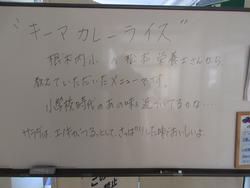 "キーマカレーライス"
根木内小の松本栄養士さんから
教えていただいたメニューです。
小学校時代のあの味に近づいてるかな…
サラダは、エノキがつるっとして、さっぱりした味でおいしいよ
この